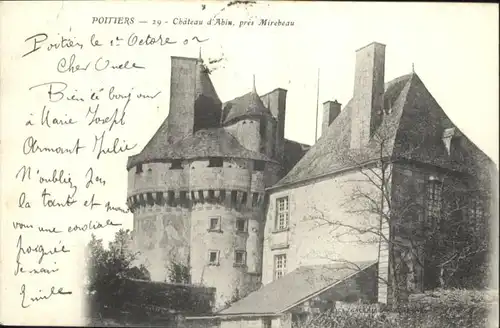 POITIERS — 29 - Château d'Abin, près Mirebeau
Poitiers le 1er Octore 02
Cher Oncle
Bien le bonjour
à Marie Joseph
Armont Julie
N'oubliez pas
la tante et
vous une cordiale
poignée
de main
Emile